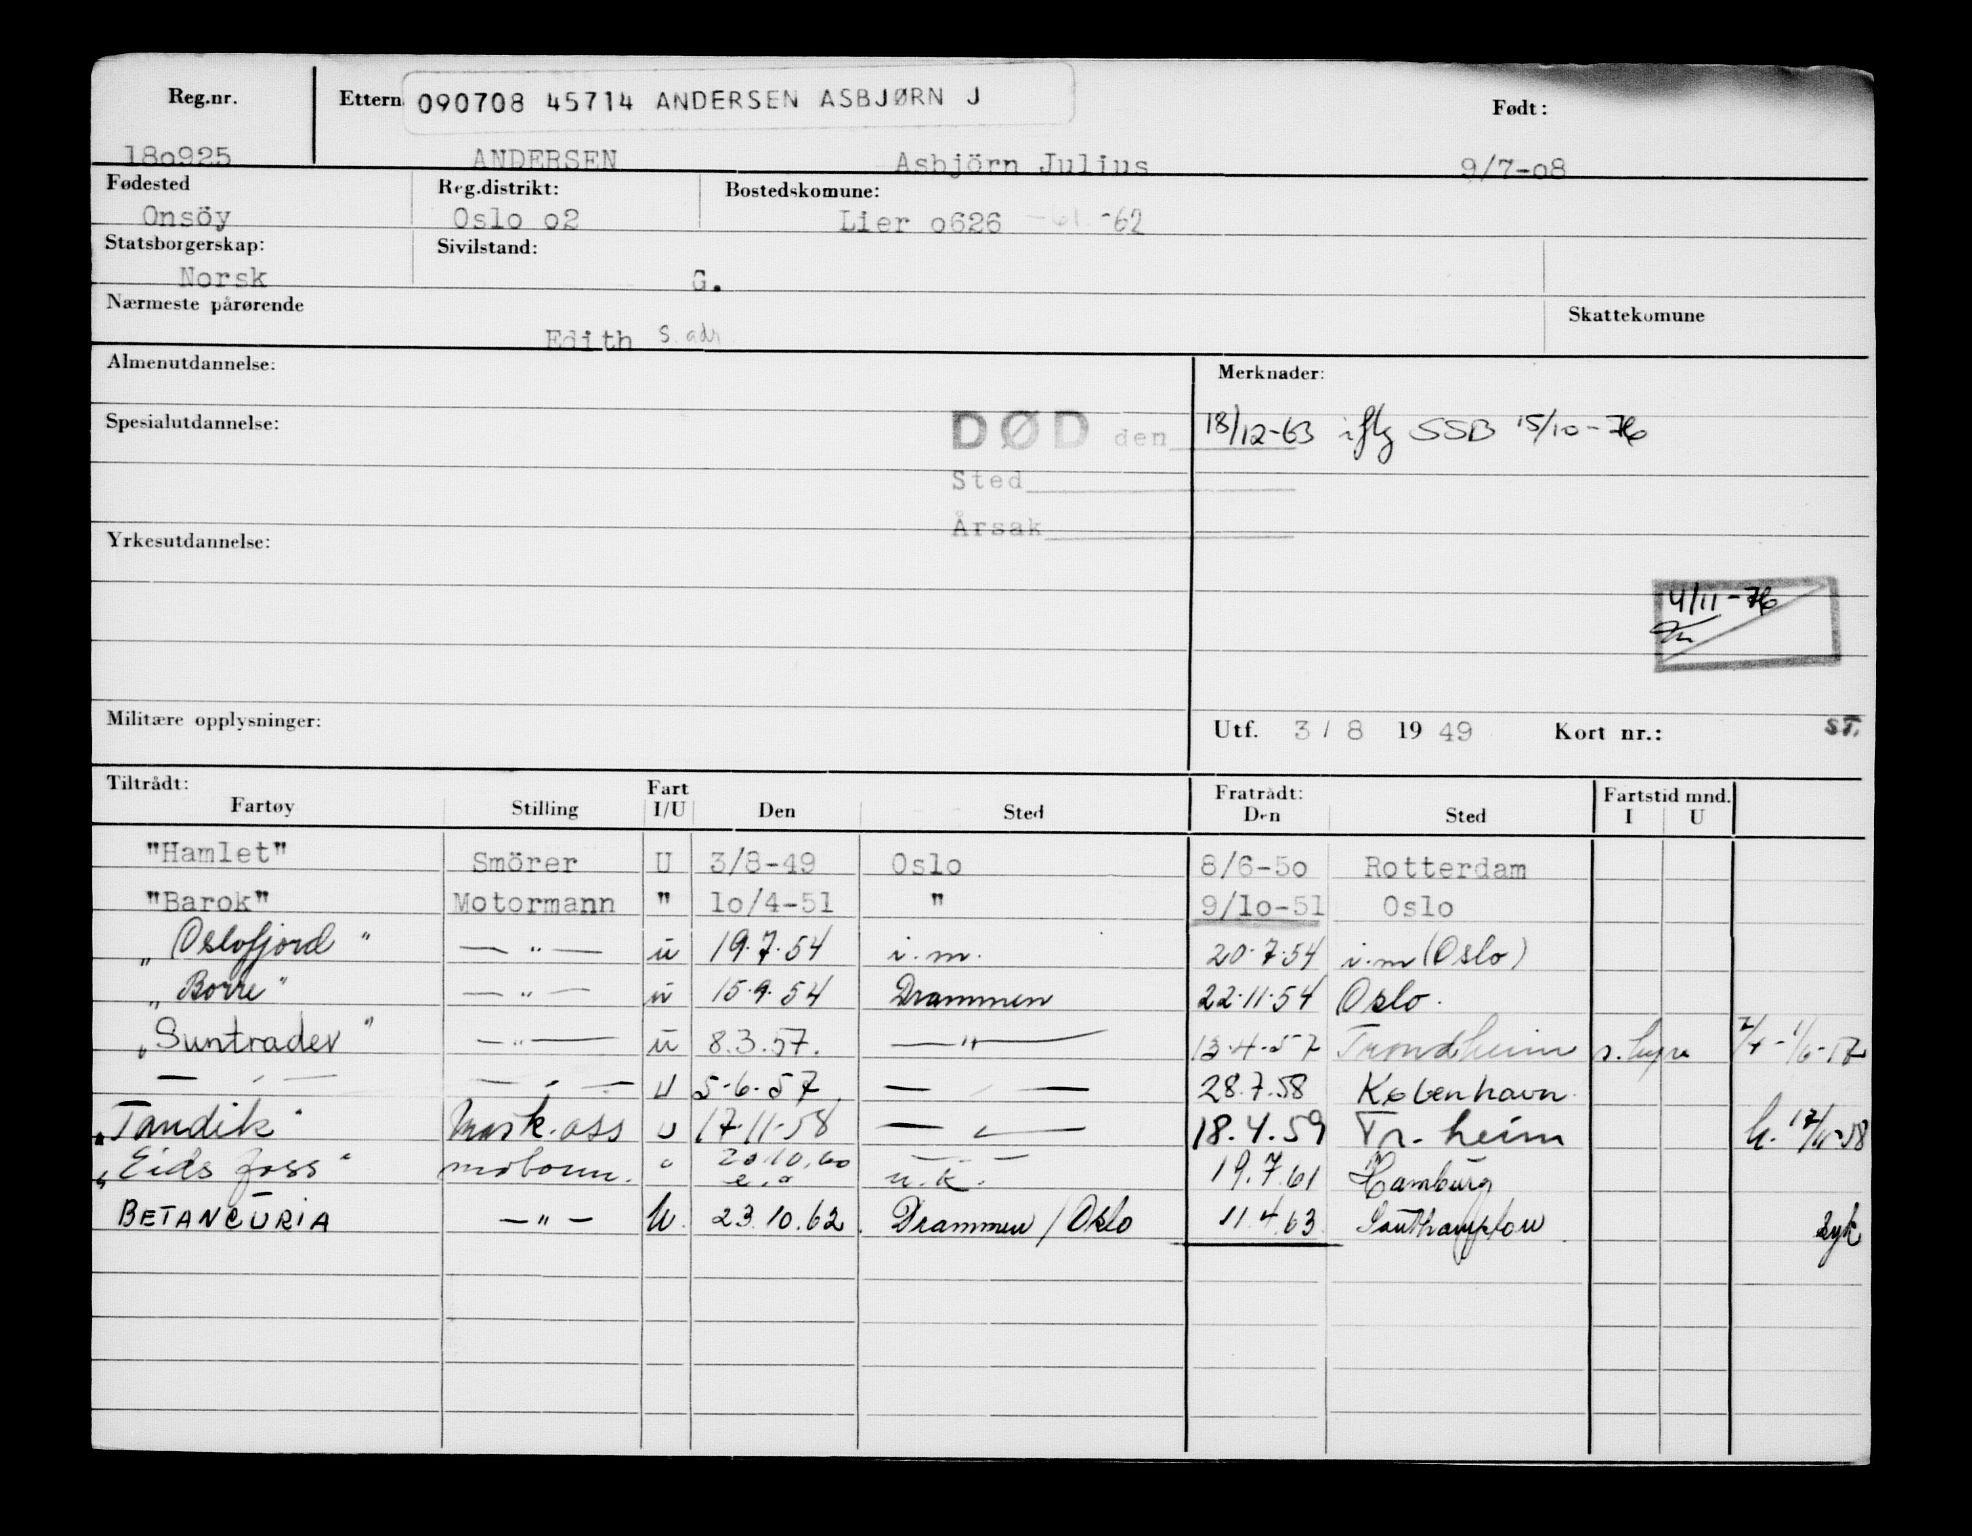 Reg.nr. Ettern 090708 45714 ANDERSEN ASBJØRN J Født:
18o925 ANDERSEN Asbjörn Julius 9/7-o8
Fødested Reg.distrikt: Bostedskomune:
Onsöy Oslo o2 Lier o626 -61 -62
Statsborgerskap: Sivilstand:
Norsk G.
Nærmeste pårørende Skattekomune
Edith s. adr
Almenutdannelse: Merknader:
Spesialutdannelse: DØD den 18/12-63 iflg SSB 15/10-76
Sted
Årsak
Yrkesutdannelse:
4/11-76
Militære opplysninger: Utf. 3 / 8 19 49 Kort nr.: ST.
Tiltrådt: Fart Fratrådt: Fartstid mnd.
Fartøy Stilling I/U Den Sted Den Sted I U
"Hamlet" Smörer U 3/8-49 Oslo 8/6-5o Rotterdam
"Barok" Motormann " lo/4-51 " 9/lo-51 Oslo
"Oslofjord" — " — u 19.7.54 i.m. 20.7.54 i.m (Oslo)
"Borre" — " — u 15.9.54 Drammen 22.11.54 Oslo.
"Suntrader" — " — u 8.3.57. — " — 13.4.57 Trondheim
— " — — " — U 5.6.57 — " — 28.7.58 København
"Tandik" Mask.ass U 17.11.58 — " — 18.4.59 Tr.heim
"Eids foss" motorm. " 20.10.60 u.k. 19.7.61 Hamburg
BETANCURIA — " — U. 23.10.62. Drammen / Oslo 11.4.63. Southampton syk